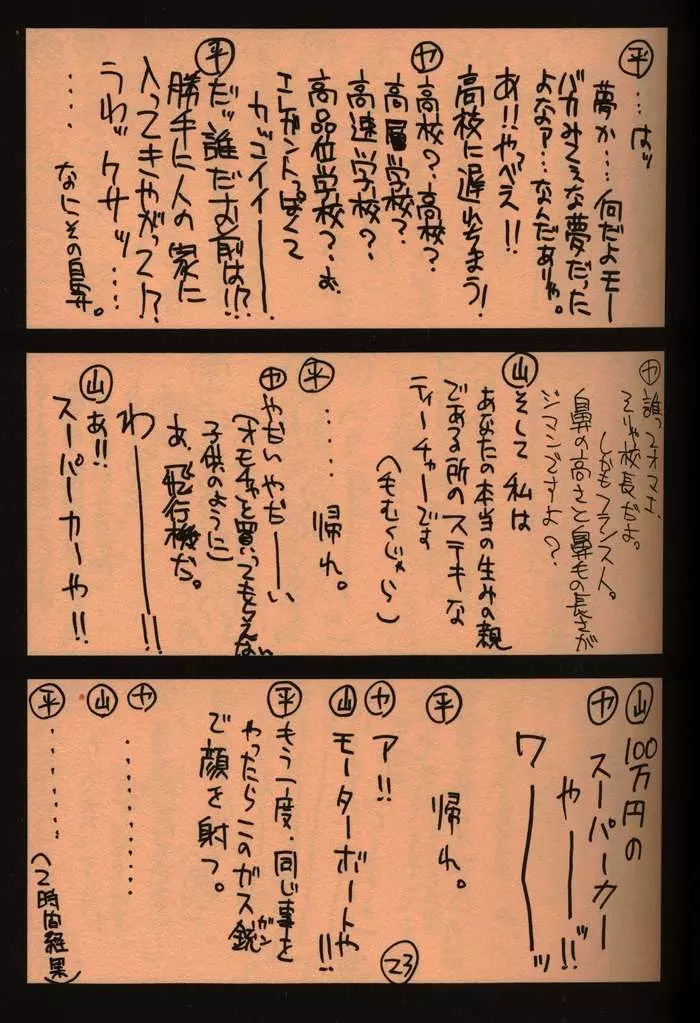 平 …はッ
夢か…何だよモー
バカみてぇな夢だった
よなァ…なんだありゃ。
あ!!やっべえ!!
高校に遅れちまう!
ヤ 高校?高校?
高層学校?
高速学校?
高品位学校?お、
エレガントっぽくて
カッコイイ――――
平 だッ誰だお前は!?
勝手に人の家に
入ってきやがって!?
うわッケサッ……
…… なにその鼻。
ヤ 誰ってオマエ、
そりゃ校長だよ。
しかもフランス人。
鼻の高さと鼻毛の長さが
ジマンですよ?
山 そして私は
あなたの本当の生みの親
である所のステキな
ティーチャーです
(毛むくじゃら)
平 …… 帰れ。
ヤ やだいやだーい
(オモチャを買ってもらえない
子供のように)
あ、飛行機だ。
わ――――!!
山 あ!!
スーパーカーや!!
山 100万円の
ヤ スーパーカー
や――ッ!!
ワ――――ッ
平 帰れ。
ヤ ア!!
山 モーターボートや!!
平 もう一度、同じ事を
やったらこのガス銃
ガン
で顔を射つ。
ヤ ………
山 ………
平 ………
(2時間経果)
23